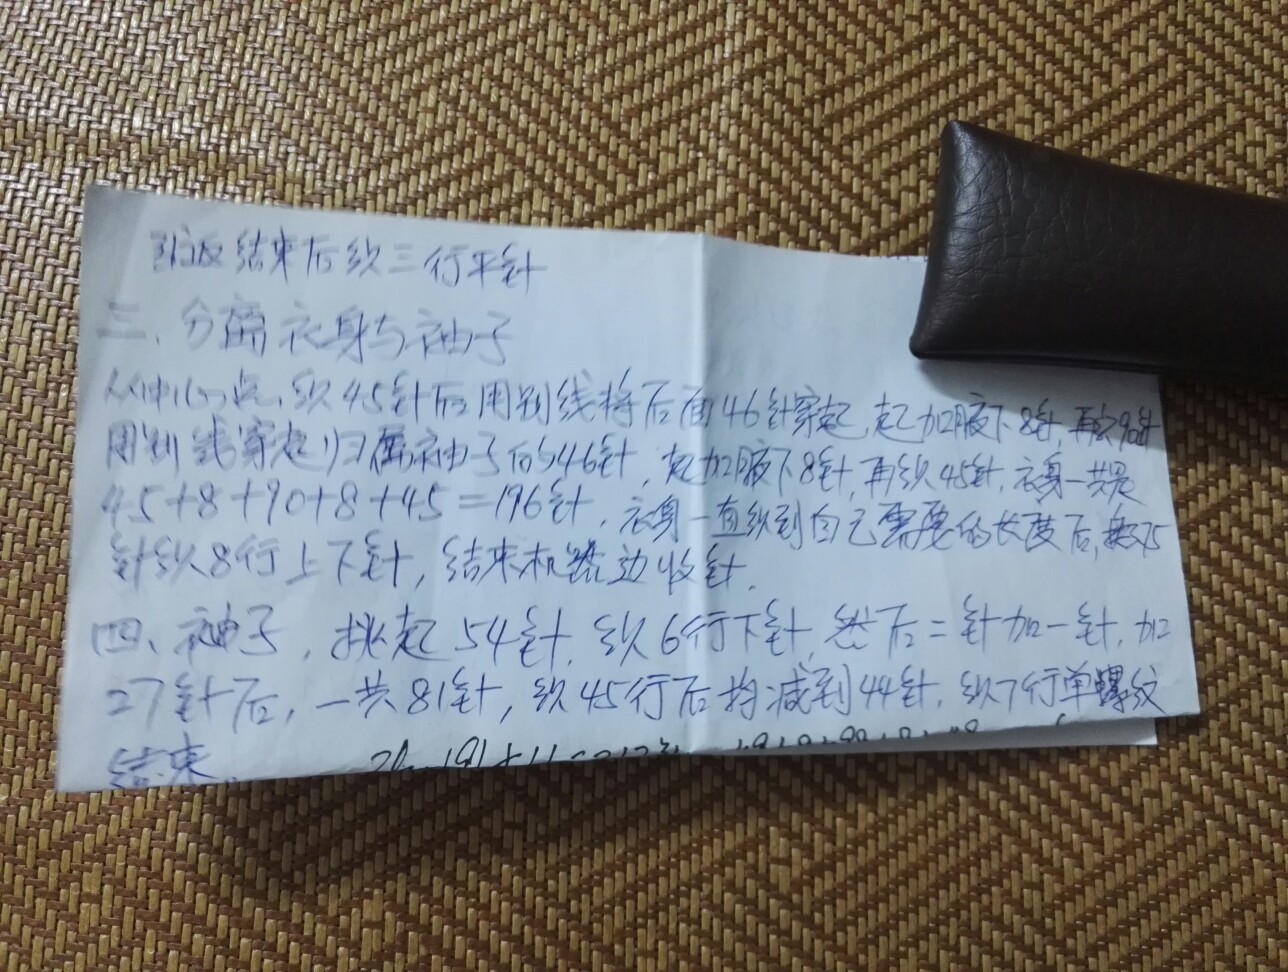 引返结束后织三行平针
三、分离衣身与袖子
从中心点,织45针后用别线将后面46针穿起,起加腋下8针,再织90针
用别线穿起归属袖子的46针,起加腋下8针,再织45针,衣身一共是
45+8+90+8+45=196针,衣身一直织到自己需要的长度后,
针织8行上下针,结束机器边收针.
四、袖子,挑起54针,织6行下针,然后二针加一针,加
27针后,一共81针,织45行后均减到44针,织7行单螺纹
结束.